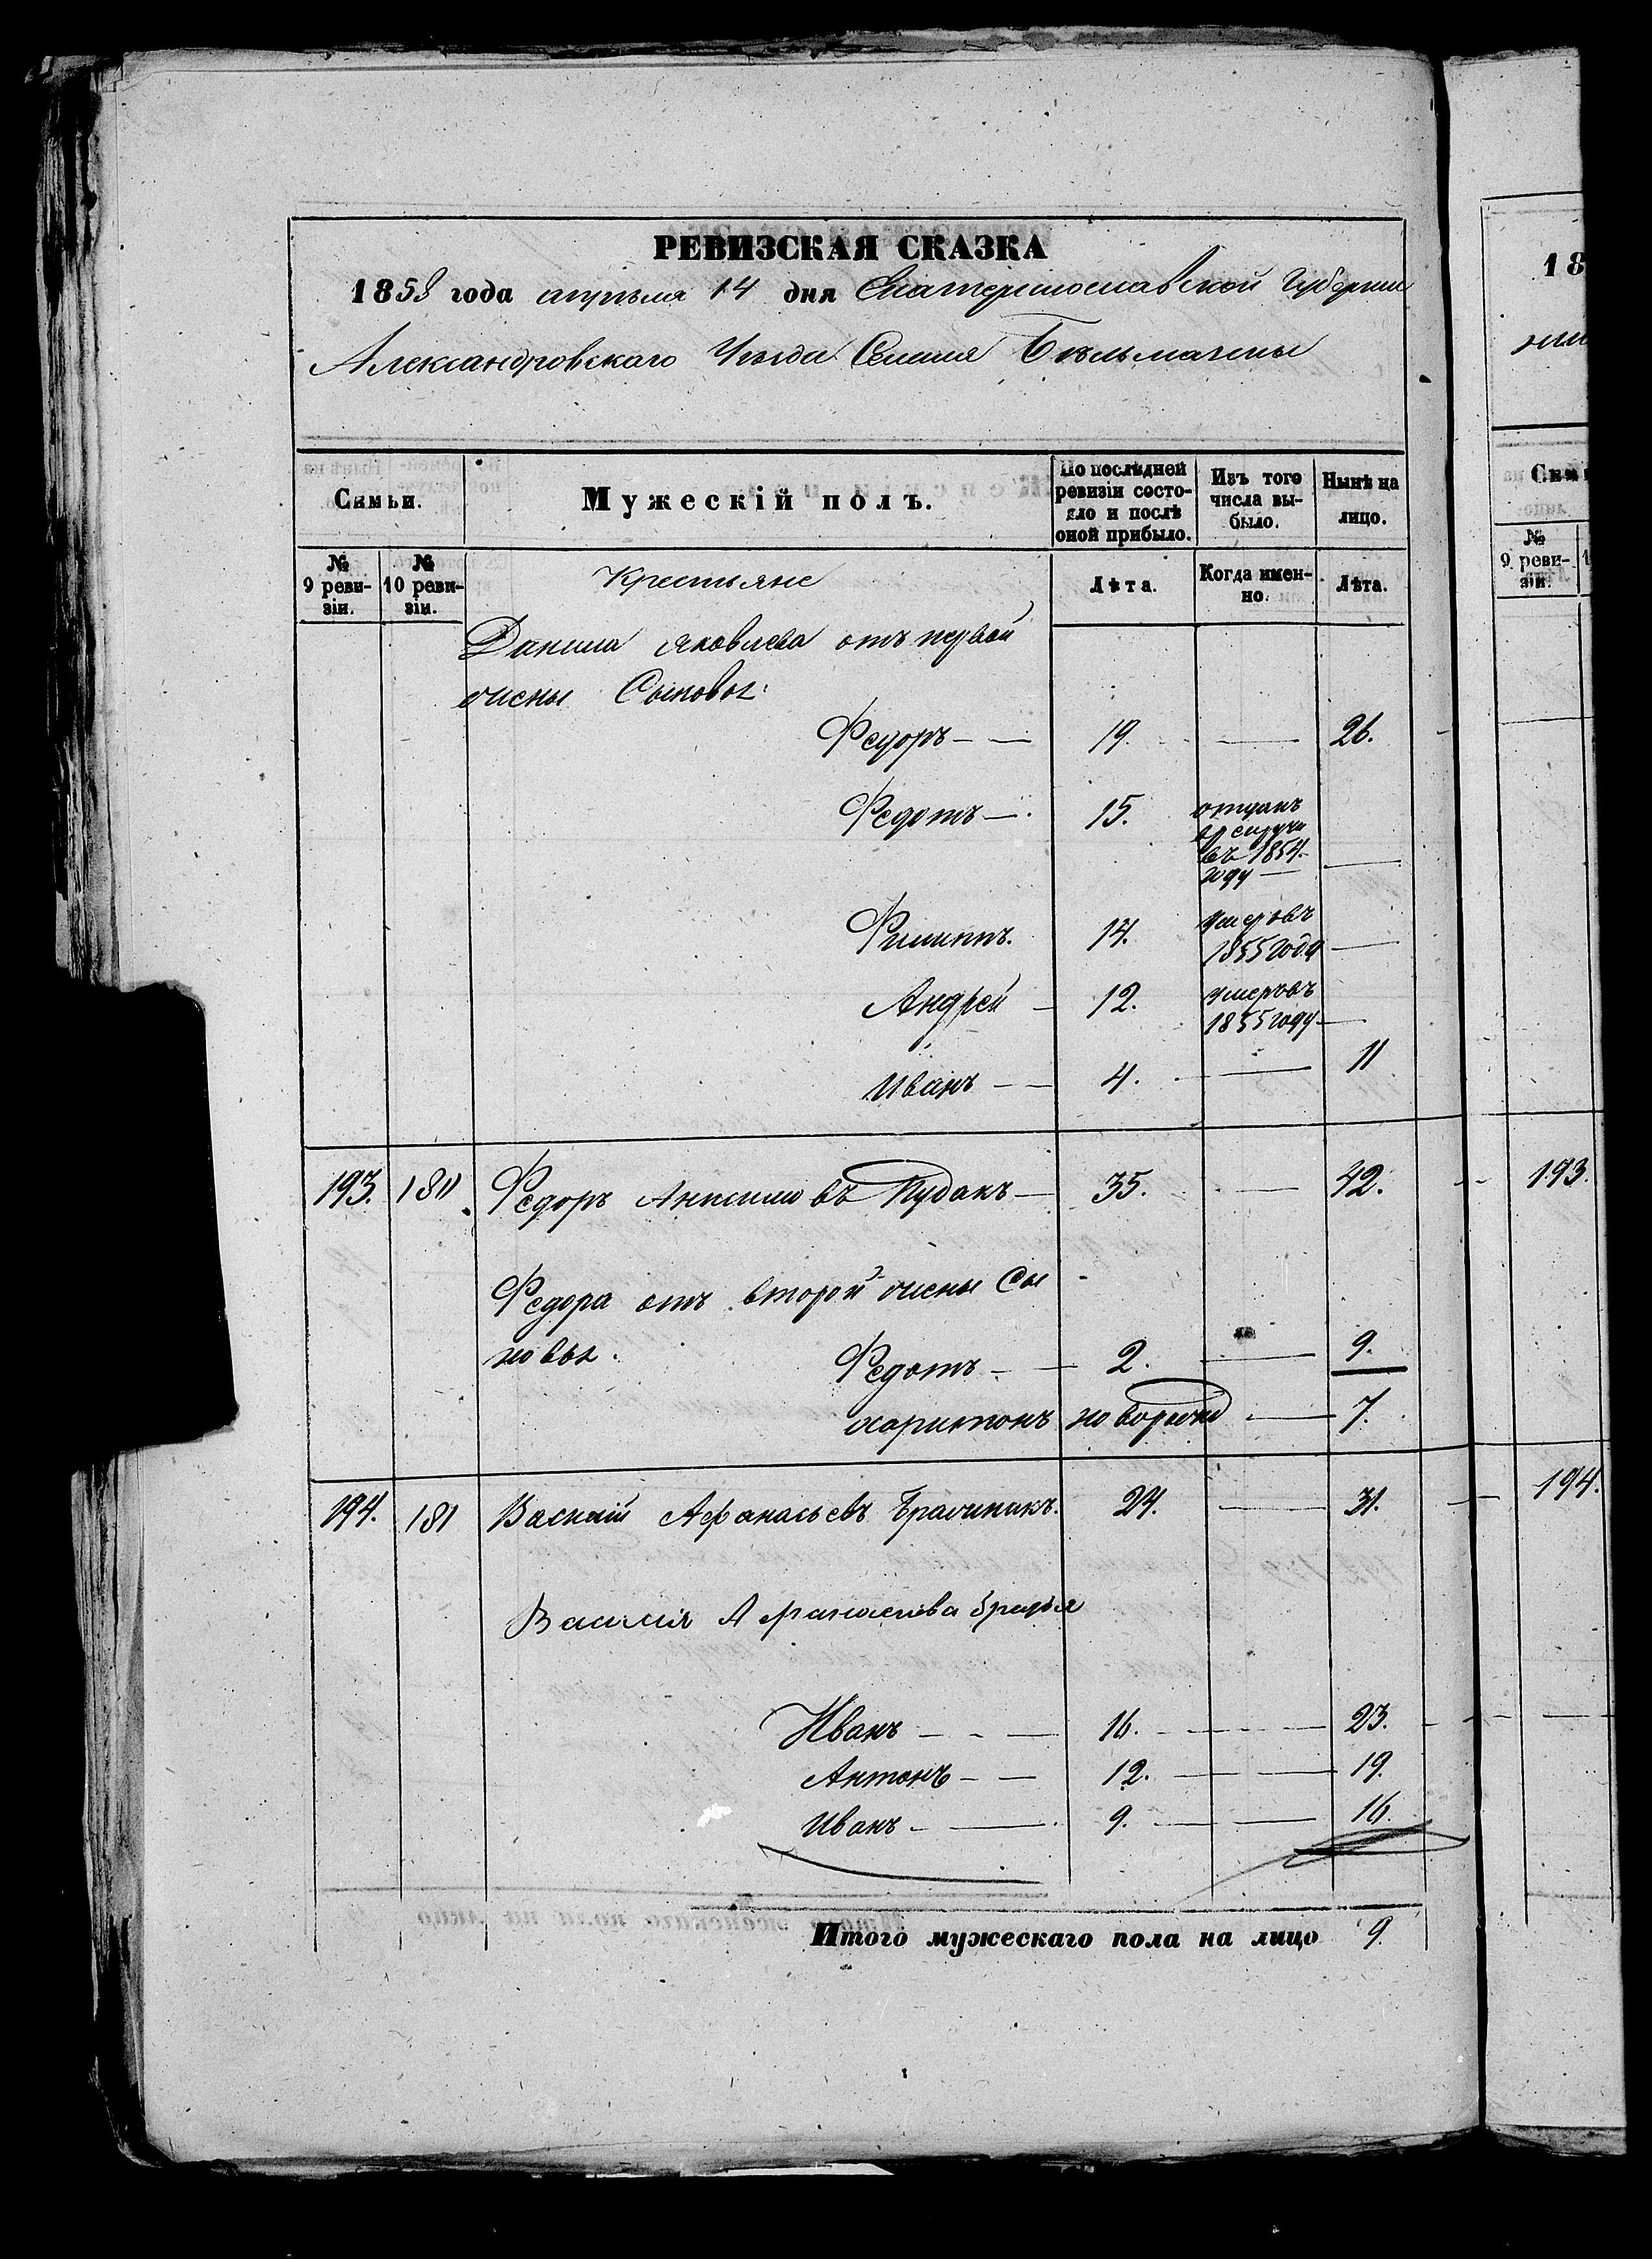 РЕВИЗСКАЯ СКАЗКА
1858 года апрѣля 14 дня Екатеринославской Губернии
Александровскаго Уезда Селения Бѣльмачены
Семьи.
Мужескій полъ.
По послѣдней ревизіи состо-
яло и послѣ оной прибыло.
Изъ того числа вы-
было.
Нынѣ на лицо.
№ 9 реви-
зіи.
№ 10 реви-
зіи.
Крестьяне
Лѣта.
Когда имен-
но.
Лѣта.
Данила Яковлева отъ первой
жены Сыновья:
Федоръ — — 19. — 26.
Федотъ — 15. отданъ
въ 1854.
году — —
Филиппъ. 14. умеръ въ
1855 года —
Андрей — 12. умеръ въ
1855 году —
Иванъ — — 4. — 11
193. 180 Федоръ Анисимовъ Кудакъ — 35. — 42.
Федора отъ второй жены Сы
новья. Федотъ — — 2. — 9.
Харитонъ новорожд — 7.
194. 181 Василій Афанасьевъ Бражникъ. 24. — 31.
Василія Афанасьева братья
Иванъ — — 16. — 23.
Антонъ — — 12. — 19.
Иванъ — 9. — 16.
Итого мужескаго пола на лицо 9.
18
Сем
№ 9 реви-
зіи.
193.
194.